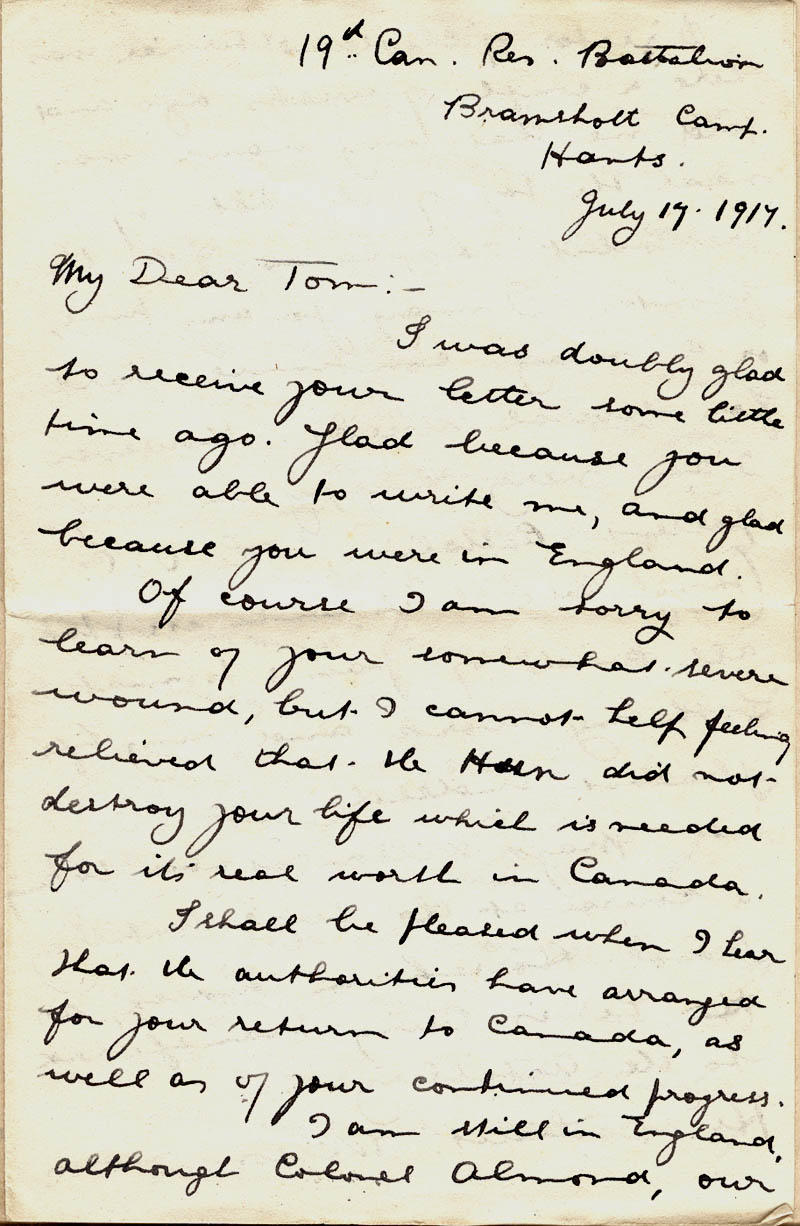 19d Can. Res. Battalion
Bramshott Camp.
Hants.
July 17. 1917.
My Dear Tom:-
I was doubly glad
to receive your letter some little
time ago. Glad because you
were able to write me, and glad
because you were in England.
Of course I am sorry to
learn of your somewhat severe
wound, but I cannot help feeling
relieved that the Hun did not
destroy your life which is needed
for its real worth in Canada.
I shall be pleased when I hear
that the authorities have arranged
for your return to Canada, as
well as of your continued progress.
I am still in England,
although Colonel Almond, our